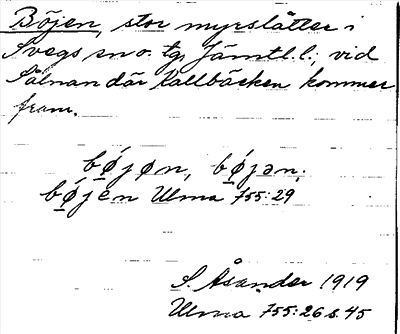 Böjen, stor myrslåtter i
Svegs sn o. tg, Jämtl. l.; vid
Sålnan där Kallbäcken kommer
fram.
bǿjøn, bǿjən;
bǿjen Ulma 755:29
S. Åsander 1919
Ulma 755:26 s. 45